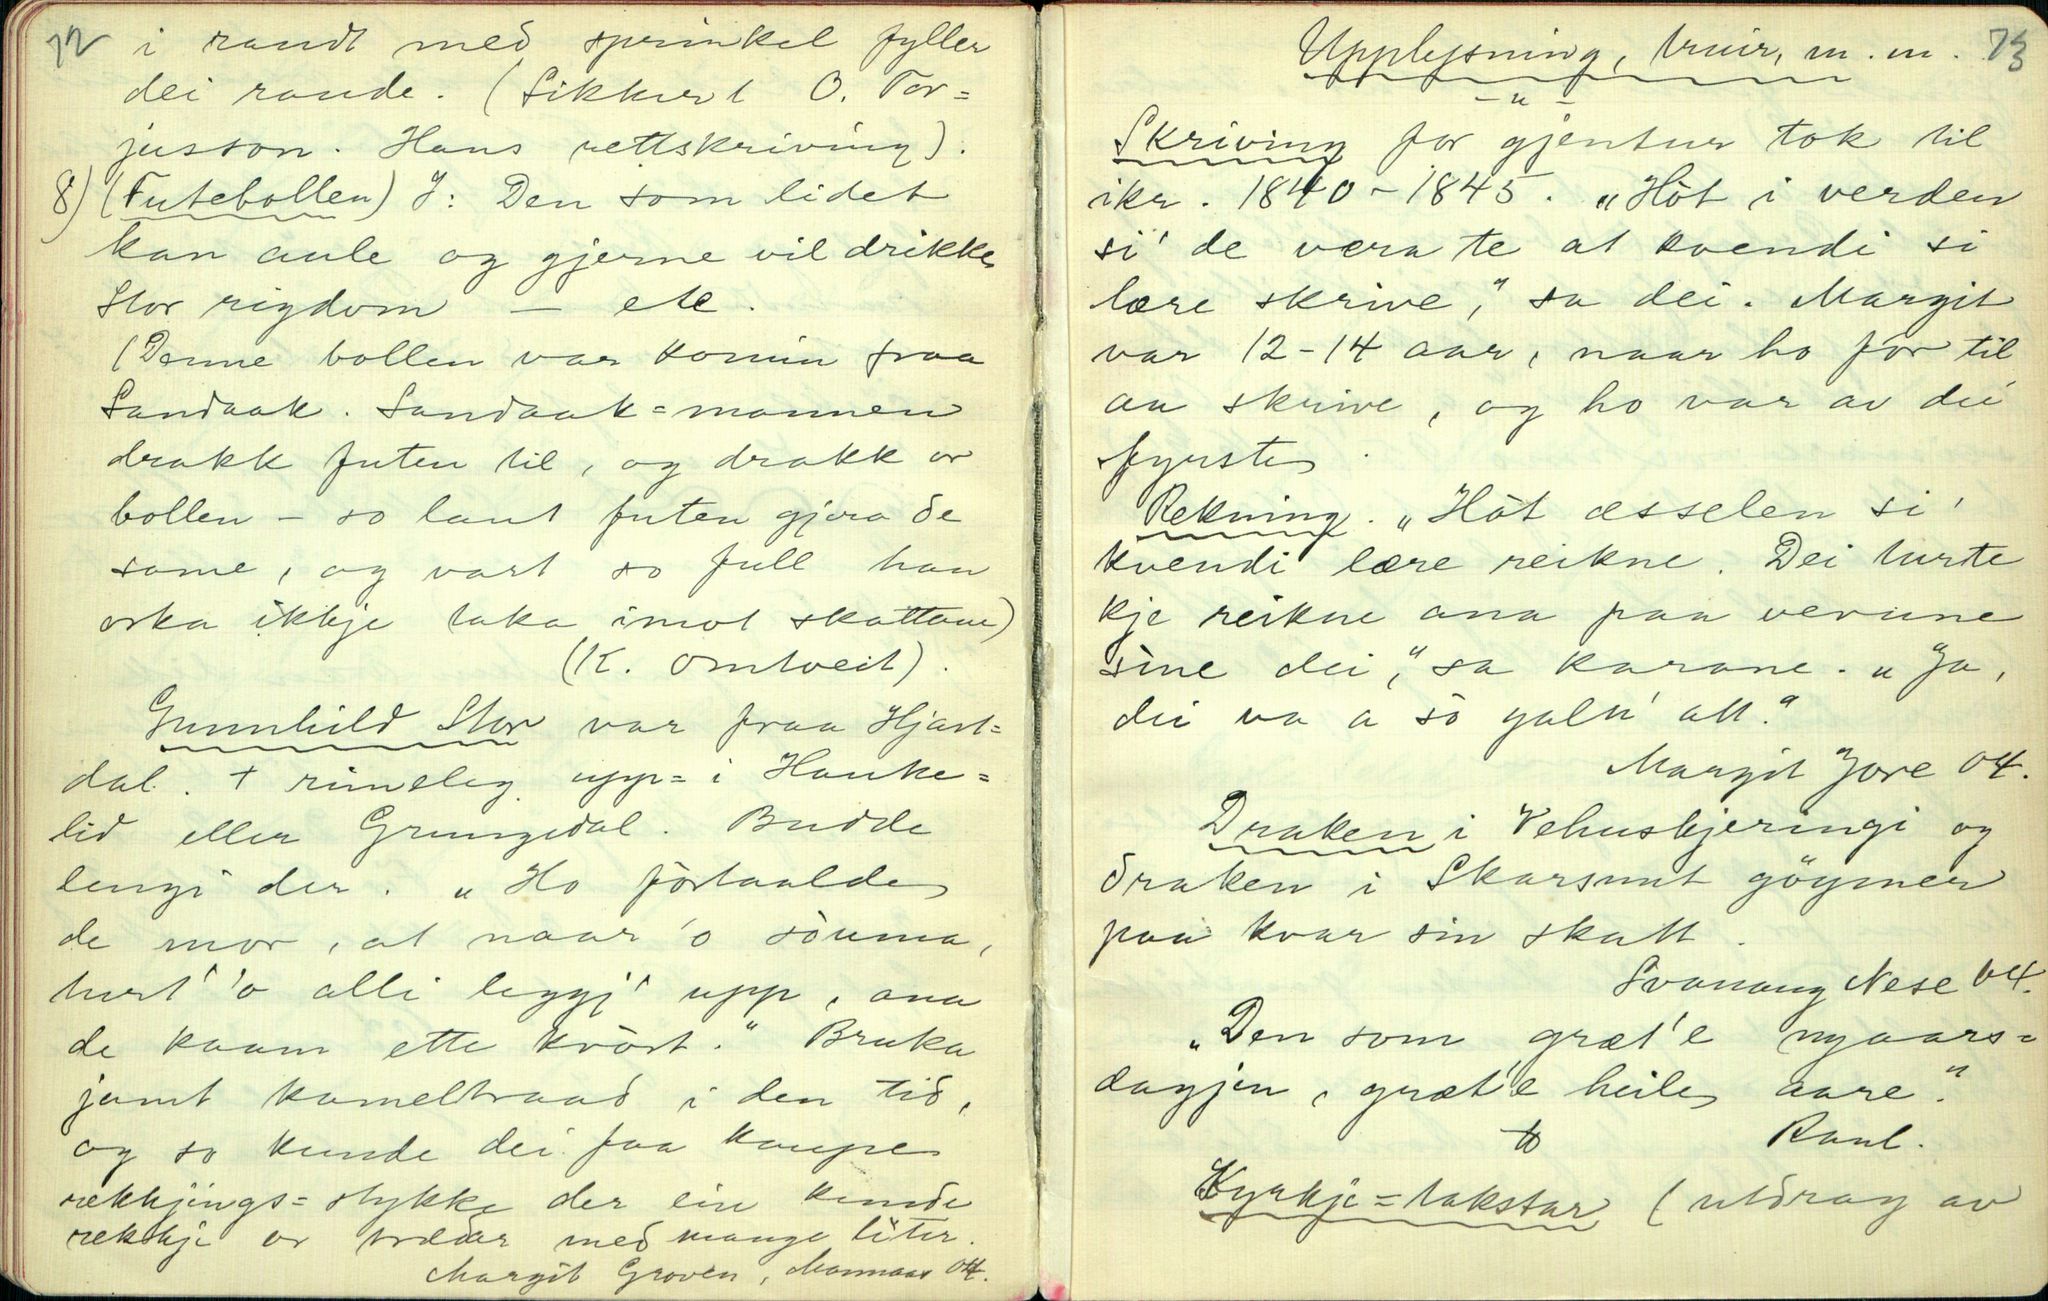 72
i raudt med sprinkel fyller
dei raude. (Sikkert O. Tor=
jusson. Hans rettskriving).
8) (Futebollen) I: Den som lidet
kan aule og gjerne vil drikke
Stor rigdom — etc.
(Denne bollen var komin fraa
Sandaak. Sandaak=mannen
drakk futen til, og drakk or
bollen – so laut futen gjera de
same, og vart so full han
orka ikkje taka imot skattane)
(K. Omtveit).
Gunnhild Stor var fraa Hjart=
dal. + rimeleg upp= i Hauke=
lid eller Grungedal. Budde
lengi der. „Ho fortaalde
de mor, at naar 'o sòuma,
turt' 'o alli leggj' upp, ana
de kaam ette kvòrt." Bruka
jamt kameltraad i den tid,
og so kunde dei faa kaupe
rækkjings=stykke der ein kunde
rekkje or trædar med mange liter.
Margit Groven, Mannaas 04.
Upplysning, truir, m.m. 73
–"–
Skriving for gjentur tok til
ikr. 1840–1845. „Hòt i verden
si' de vera te at kvendi si
lære skrive," sa dei. Margit
var 12–14 aar, naar ho for til
aa skrive, og ho var av dei
fyrste.
Rekning. „Hòt æsselen si'
kvendi lære reikne. Dei turte
kje reikne ana paa verune
sine dei," sa karane. „Ja,
dei va a sò galn' att."
Margit Jore 04.
Draken i Vehuskjeringi og
draken i Skarsnut göymer
paa kvar sin skatt.
Svanaug Nese 04.
„Den som græt'e nyaars=
dagjen, græt'e heile aare."
Raul.
Kyrkje=takstar (utdrag av